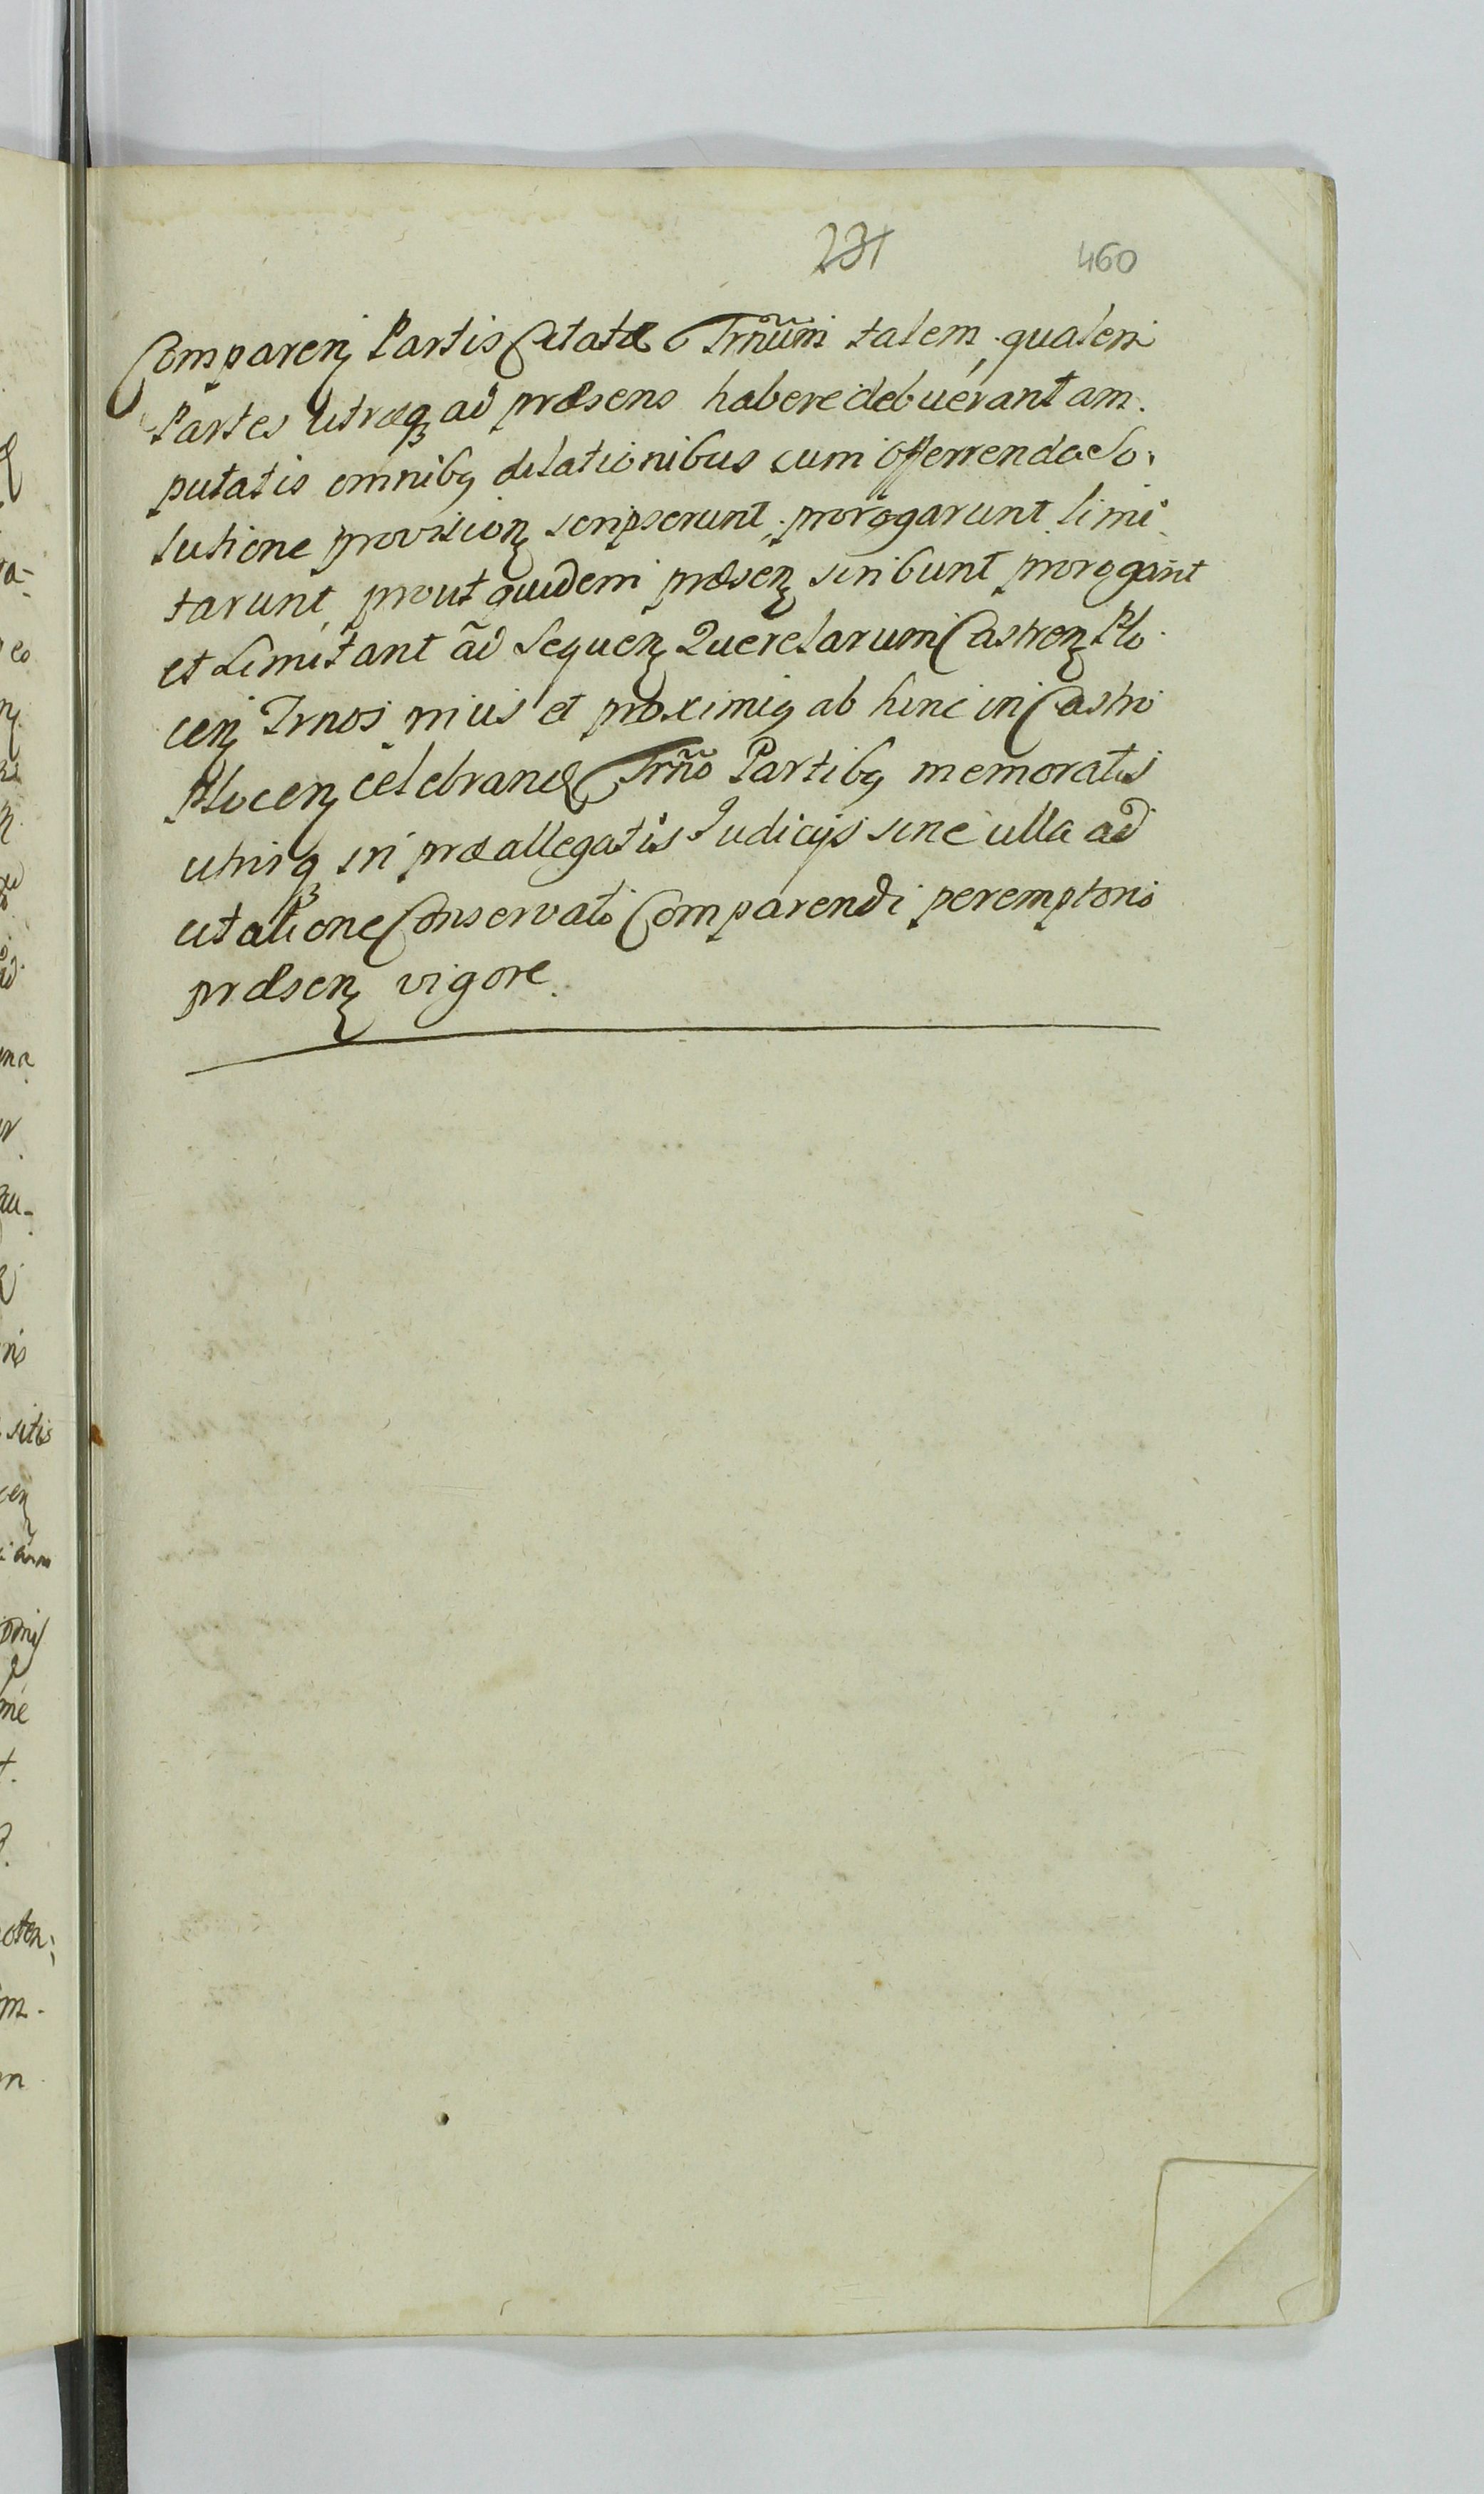 231 460
Comparenꝭ Partis Citatæ Trnũm talem, qualem
Partes Utræqꝫ ad præsens habere debuerant am.
putatis omnibꝫ dilationibus cum offerrenda So.
lutione provisionꝭ scripserunt, prorogarunt limi
tarunt, prout quidem præsenꝭ scribunt prorogant
et Limitant ad Sequenꝭ Querelarum Castrenꝭ Plo
cenꝭ Trnos et proximiꝫ ab hinc in Castro
Plocenꝭ celebrand Trño Partibꝫ memoratis
utrisqꝫ in præallegatis Judicijs sine ulla ad
citatione Conservato Comparendi peremptorio
præsenꝭ vigore.